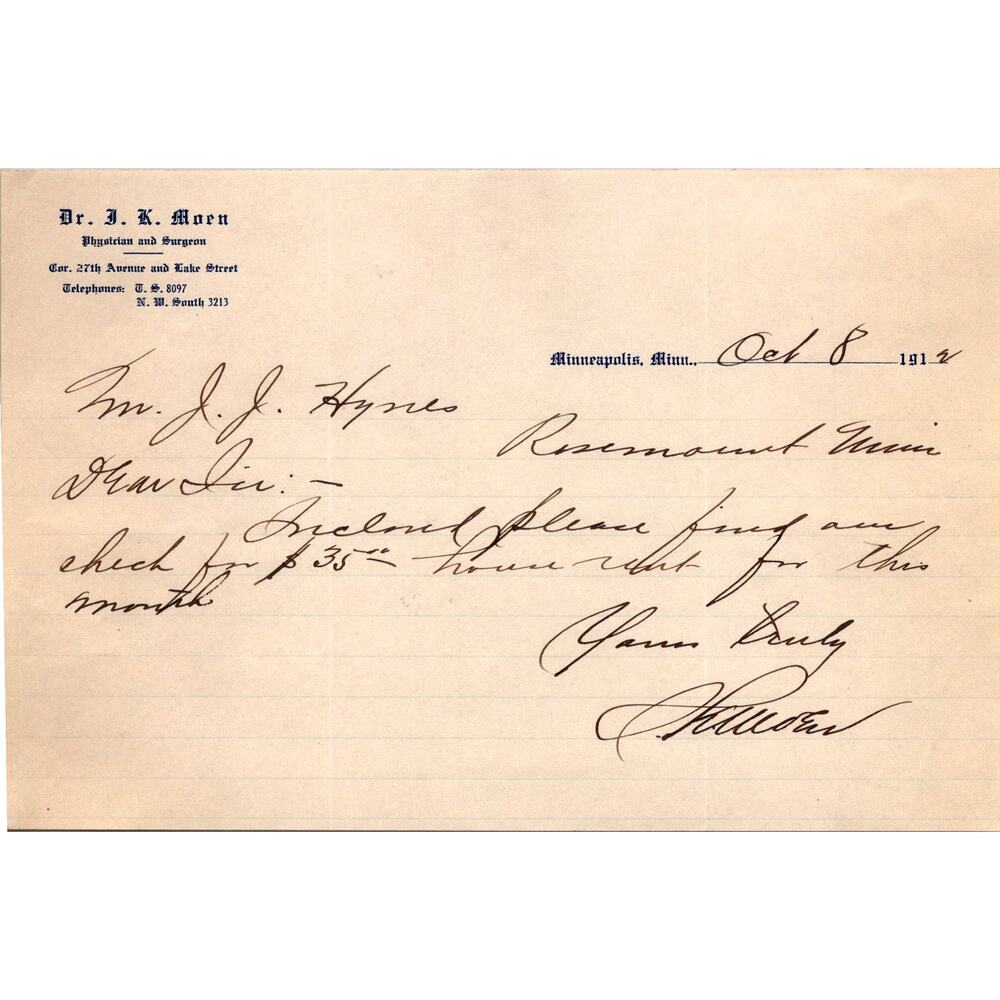 Dr. J. K. Moen
Physician and Surgeon
Cor. 27th Avenue and Lake Street
Telephones: T. S. 8097
N. W. South 3213
Minneapolis, Minn., Oct 8 1912
Mr. J. J. Hynes
Rosemount Minn
Dear Sir: -
Inclosed please find our
check for $35⁰⁰ house rent for this
month
Yours truly
J.K. Moen